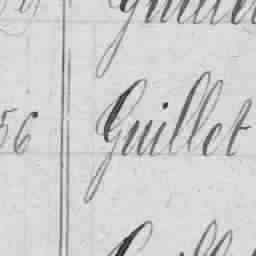 56 Guillet